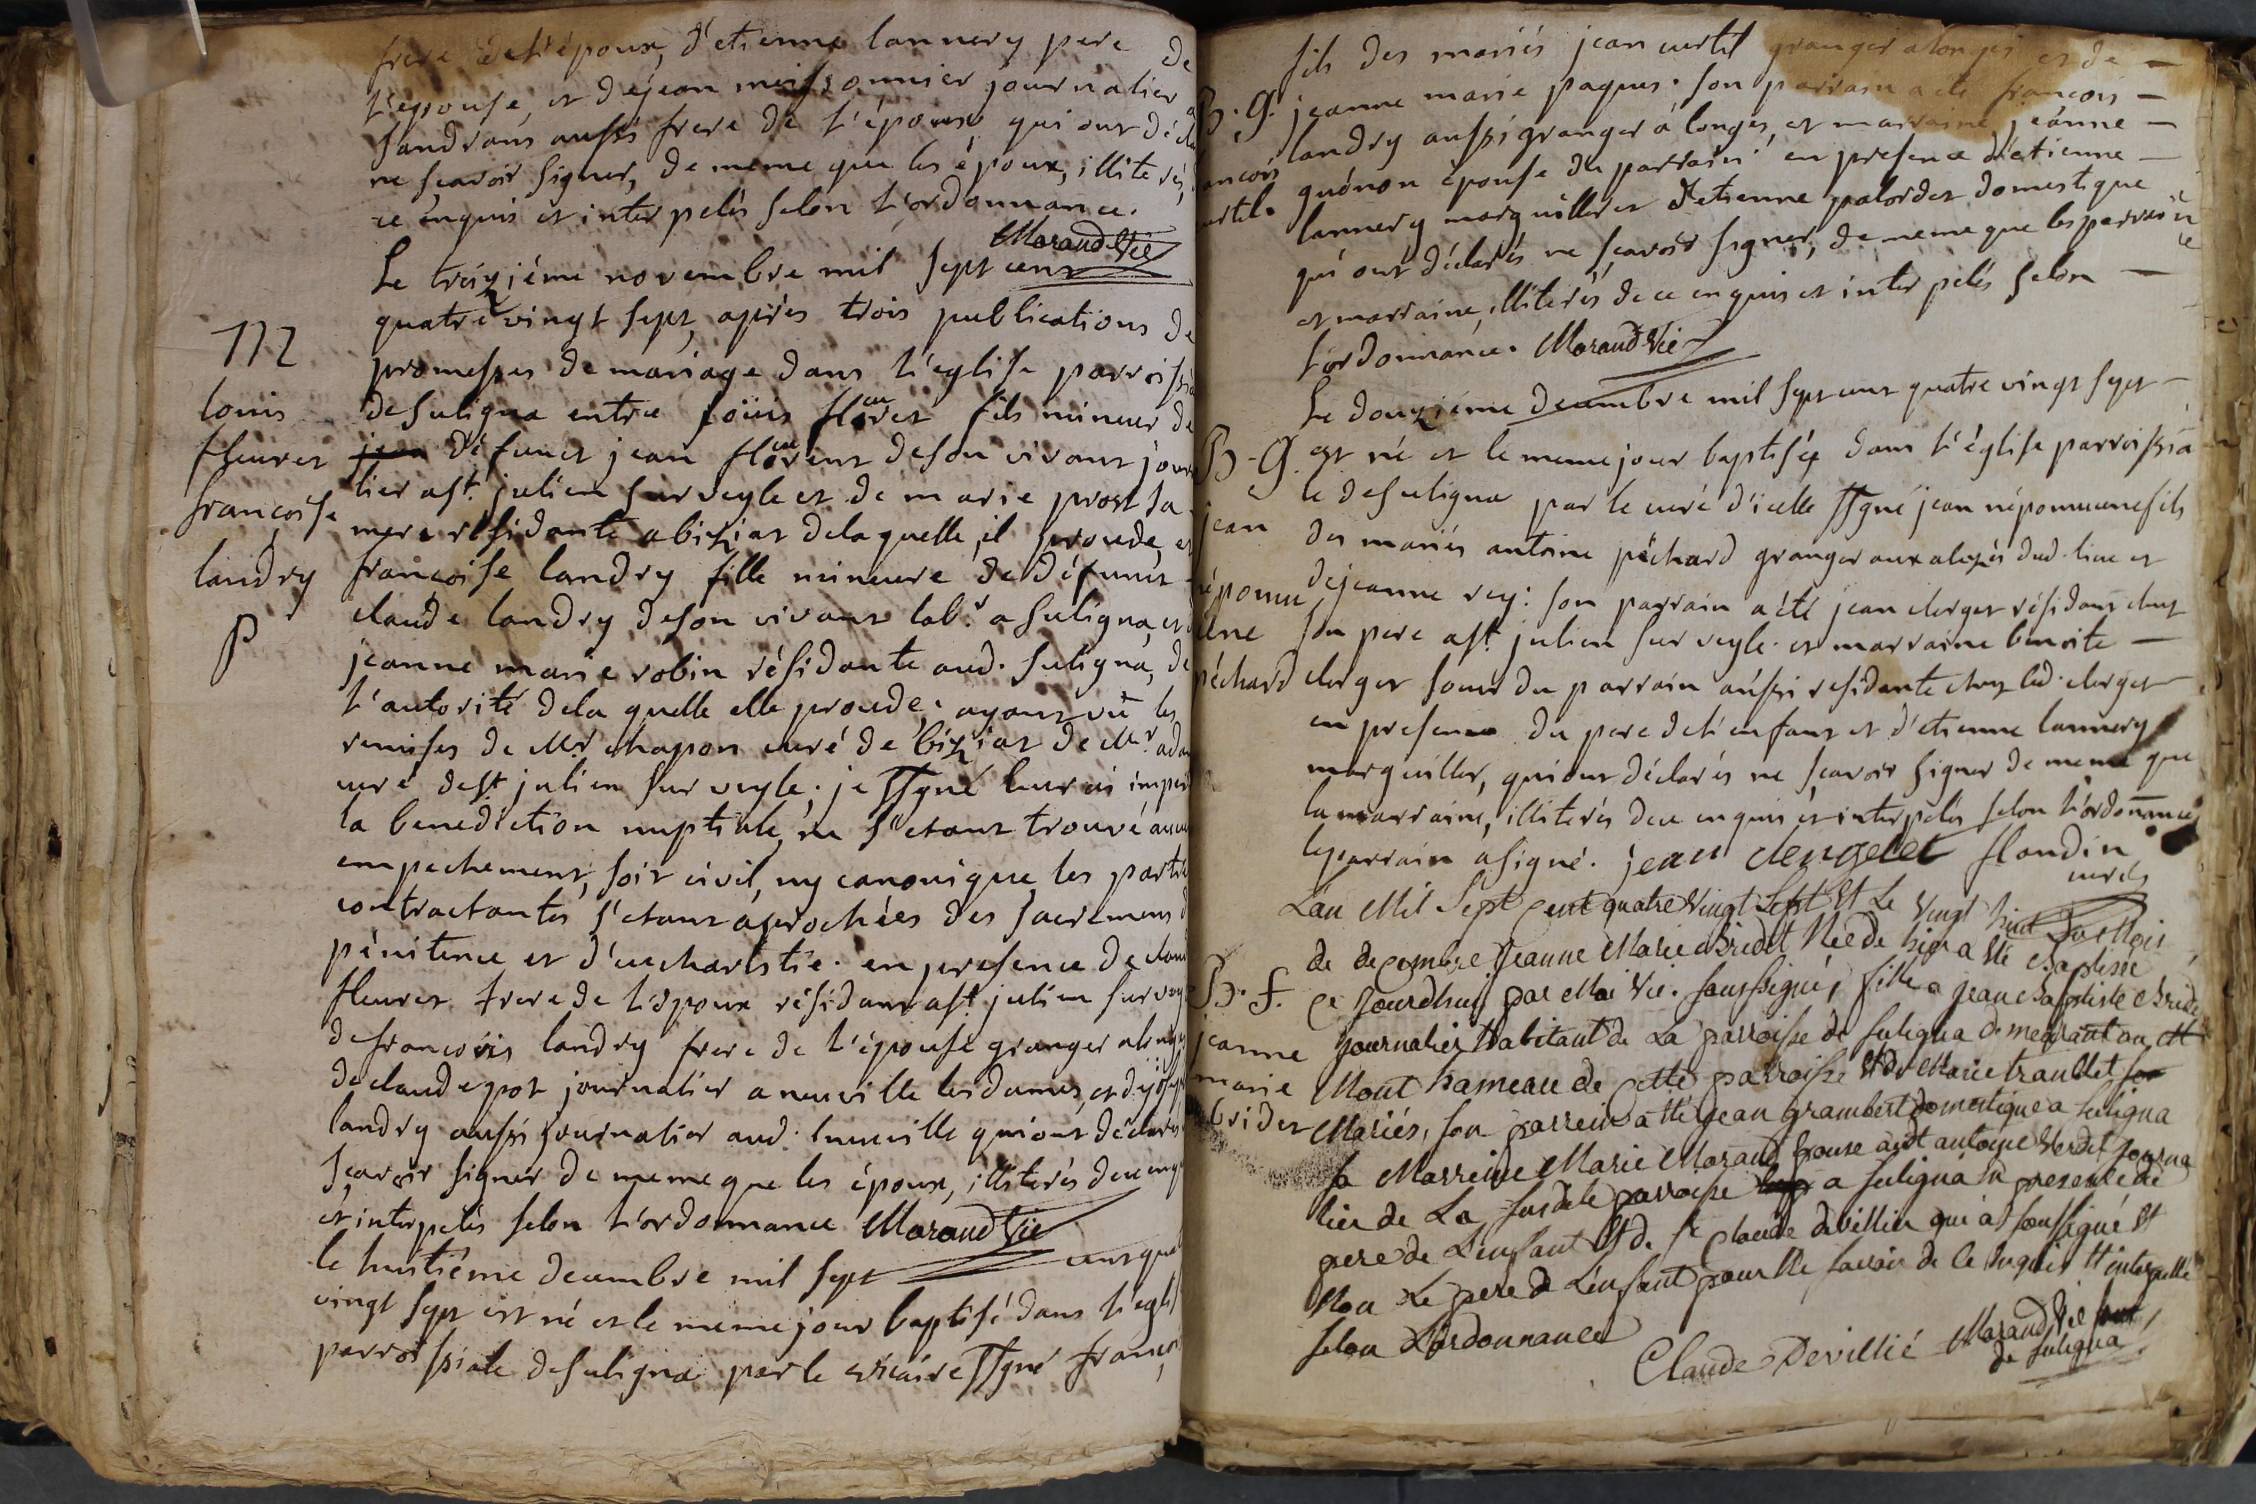 frere de l'époux, d'etienne lannery pere de
l'epouse, et de jean meissonnier journalier a
sandrans aussi frere de l'épouse qui ont décla
ne scavoir signer, de meme que les époux, illiterés,
ce enquis et interpelés selon l'ordonnance.
Moraud Vic
Le treizième novembre mil sept cent
quatre vingt sept, après trois publications de
promesses de mariage dans l'eglise parroissia
de suligna entre loüis fleuret fils mineur de
défunct jean fleurent de son vivant jour
lier a st. julien sur veyle et de marie prost sa
mere résidante a biziat de laquelle il procede, et
francoise landry fille mineure de défunct
claude landry de son vivant labr. a suligna, et d
jeanne marie robin résidante aud. suligna, de
l'autorité de la quelle elle procede. ayant vû les
remises de Mr. chapon curé de biziat de Mr. adam
curé de st julien sur veyle; je ssgné leur ai impar
la benediction nuptiale, ne s'etant trouvé aucun
empechement, soit civil, ny canonique les partie
contractantes s'etant aprochées des sacremens d
pénitence et d'eucharistie. en presence de claud
fleuret frere de l'époux résidant a st. julien sur vey
de francois landry frere de l'épouse granger a longes
de claude pot journalier a neuville les dames, et de joseph
landry aussi journalier aud. neuville qui ont déclarés
scavoir signer de meme que les époux, illiterés de ce enq
et interpelés selon l'ordonnance Moraud Vic
le huitième decembre mil sept cent qua
vingt sept est né et le meme jour baptisé dans l'egli
parroissiale de suligna par le vicaire ssgné francois
112
louis
fleuret
francoise
landry
p
fils des mariés jean curtil granger a longes et de
jeanne marie paques. son parrain a été francois
landry aussi granger à longes, et marraine jeanne
guénon épouse du parrain en presence d'etienne
lannery marguiller et d'etienne palordet domestique
qui ont déclarés ne scavoir signer, de meme que les parrain
et marraine, illiterés de ce enquis et interpelés selon
l'ordonnance. Moraud Vic
Le douzième decembre mil sept cent quatre vingt sept
est né et le meme jour baptisé dans l'église parroissia
le de suligna par le curé d'icelle ssgné jean népomucene fils
des mariés antoine péchard granger aux alezés dud. lieu et
de jeanne rey: son parrain a été jean clerget résidant chez
son pere a st. julien sur veyle. et marraine benoite
clerget soeur du parrain aussi residante chez led. clerget
en presence du pere de l'enfant et d'etienne lannery
marguiller, qui ont déclarés ne scavoir signer de meme que
la marraine, illiterés de ce enquis et interpelés selon l'ordonnance
le parrain a signé. jean clergelet flandin
curé
L'an Mil Sept Cent quatre Vingt Sept Et Le Vingt huit du Mois
de decembre Jeanne Marie Bridet Née de hier a été Baptisée
Ce Jourdhuy par Moi Vic. soussigné, fille a jean Baptiste Bride
Journalier habitant de La parroisse de suligna demeurant au
Mont hameau de Cette parroisse Et de Marie tramblet
Mariés, son parrein a été Jean grambert domestique a suligna
sa Marreine Marie Moraud Epouse audt antoine Verdet Journa
lier de La susdite parroisse a suligna En presence du
pere de L'enfant Et de sr Claude devillier qui a soussigné Et
Non Le pere de L'enfant pour Ne savoir de Ce Enquis Et interpellé
selon L'ordonnance
Claude Devillié Moraud Vic
de suligna
B. G.
ancois
urtil.
B. G.
jean
népomu
cene
péchard
B. f.
jeanne
marie
bridet